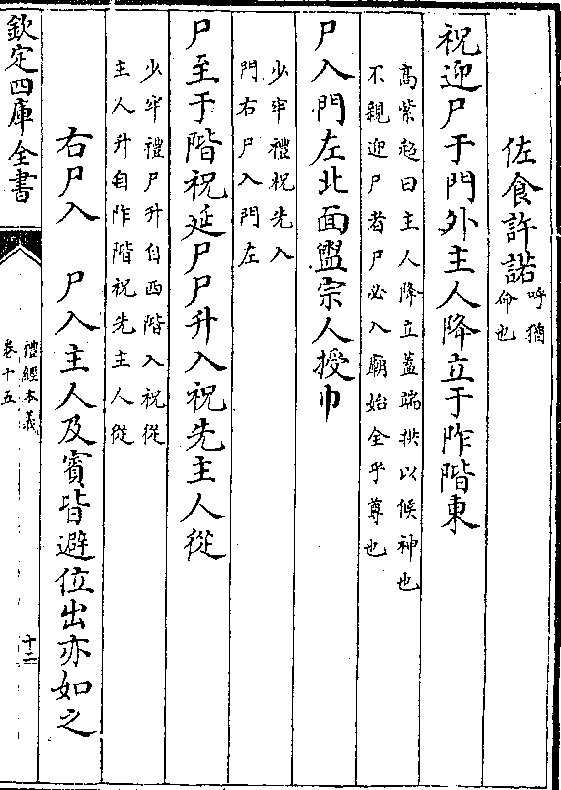 佐食許諾
呼猶
命也
祝迎尸于門外主人降立于阼階東
高紫超曰主人降立蓋端拱以候神也
不親迎尸者尸必入廟始全乎尊也
尸入門左北面盥宗人授巾
少牢禮祝先入
門右尸入門左
尸至于階祝延尸尸升入祝先主人從
少牢禮尸升自西階入祝從
主人升自阼階祝先主人從
右尸入 尸入主人及賓皆避位出亦如之
欽定四庫全書
禮經本義
卷十五
十二